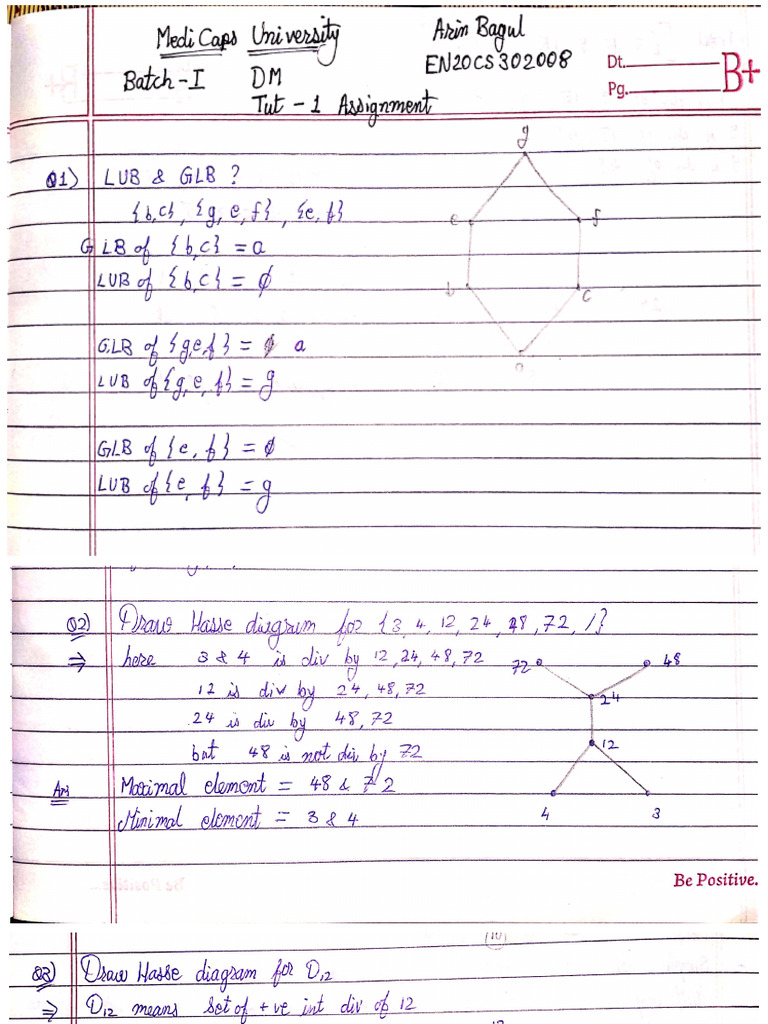 Medi Caps University
Arin Bagul
EN20CS302008
Batch-I DM
Tut-1 Assignment
Dt.
Pg.
B+
Q1) LUB & GLB ?
{b,c}, {g, e, f}, {e, f}
GLB of {b,c} = a
LUB of {b,c} = ϕ
GLB of {g,e,f} = ϕ a
LUB of {g, e, f} = g
GLB of {e, f} = ϕ
LUB of {e, f} = g
g
e f
b c
a
Q2) Draw Hasse diagram for {3, 4, 12, 24, 48, 72, /}
⇒ here 3 & 4 is div by 12, 24, 48, 72
12 is div by 24, 48, 72
24 is div by 48, 72
but 48 is not div by 72
Ans Maximal element = 48 & 72
Minimal element = 3 & 4
72 48
24
12
4 3
Be Positive.
Q3) Draw Hasse diagram for D12
⇒ D12 means set of +ve int div of 12